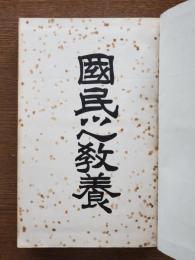 國民之教養